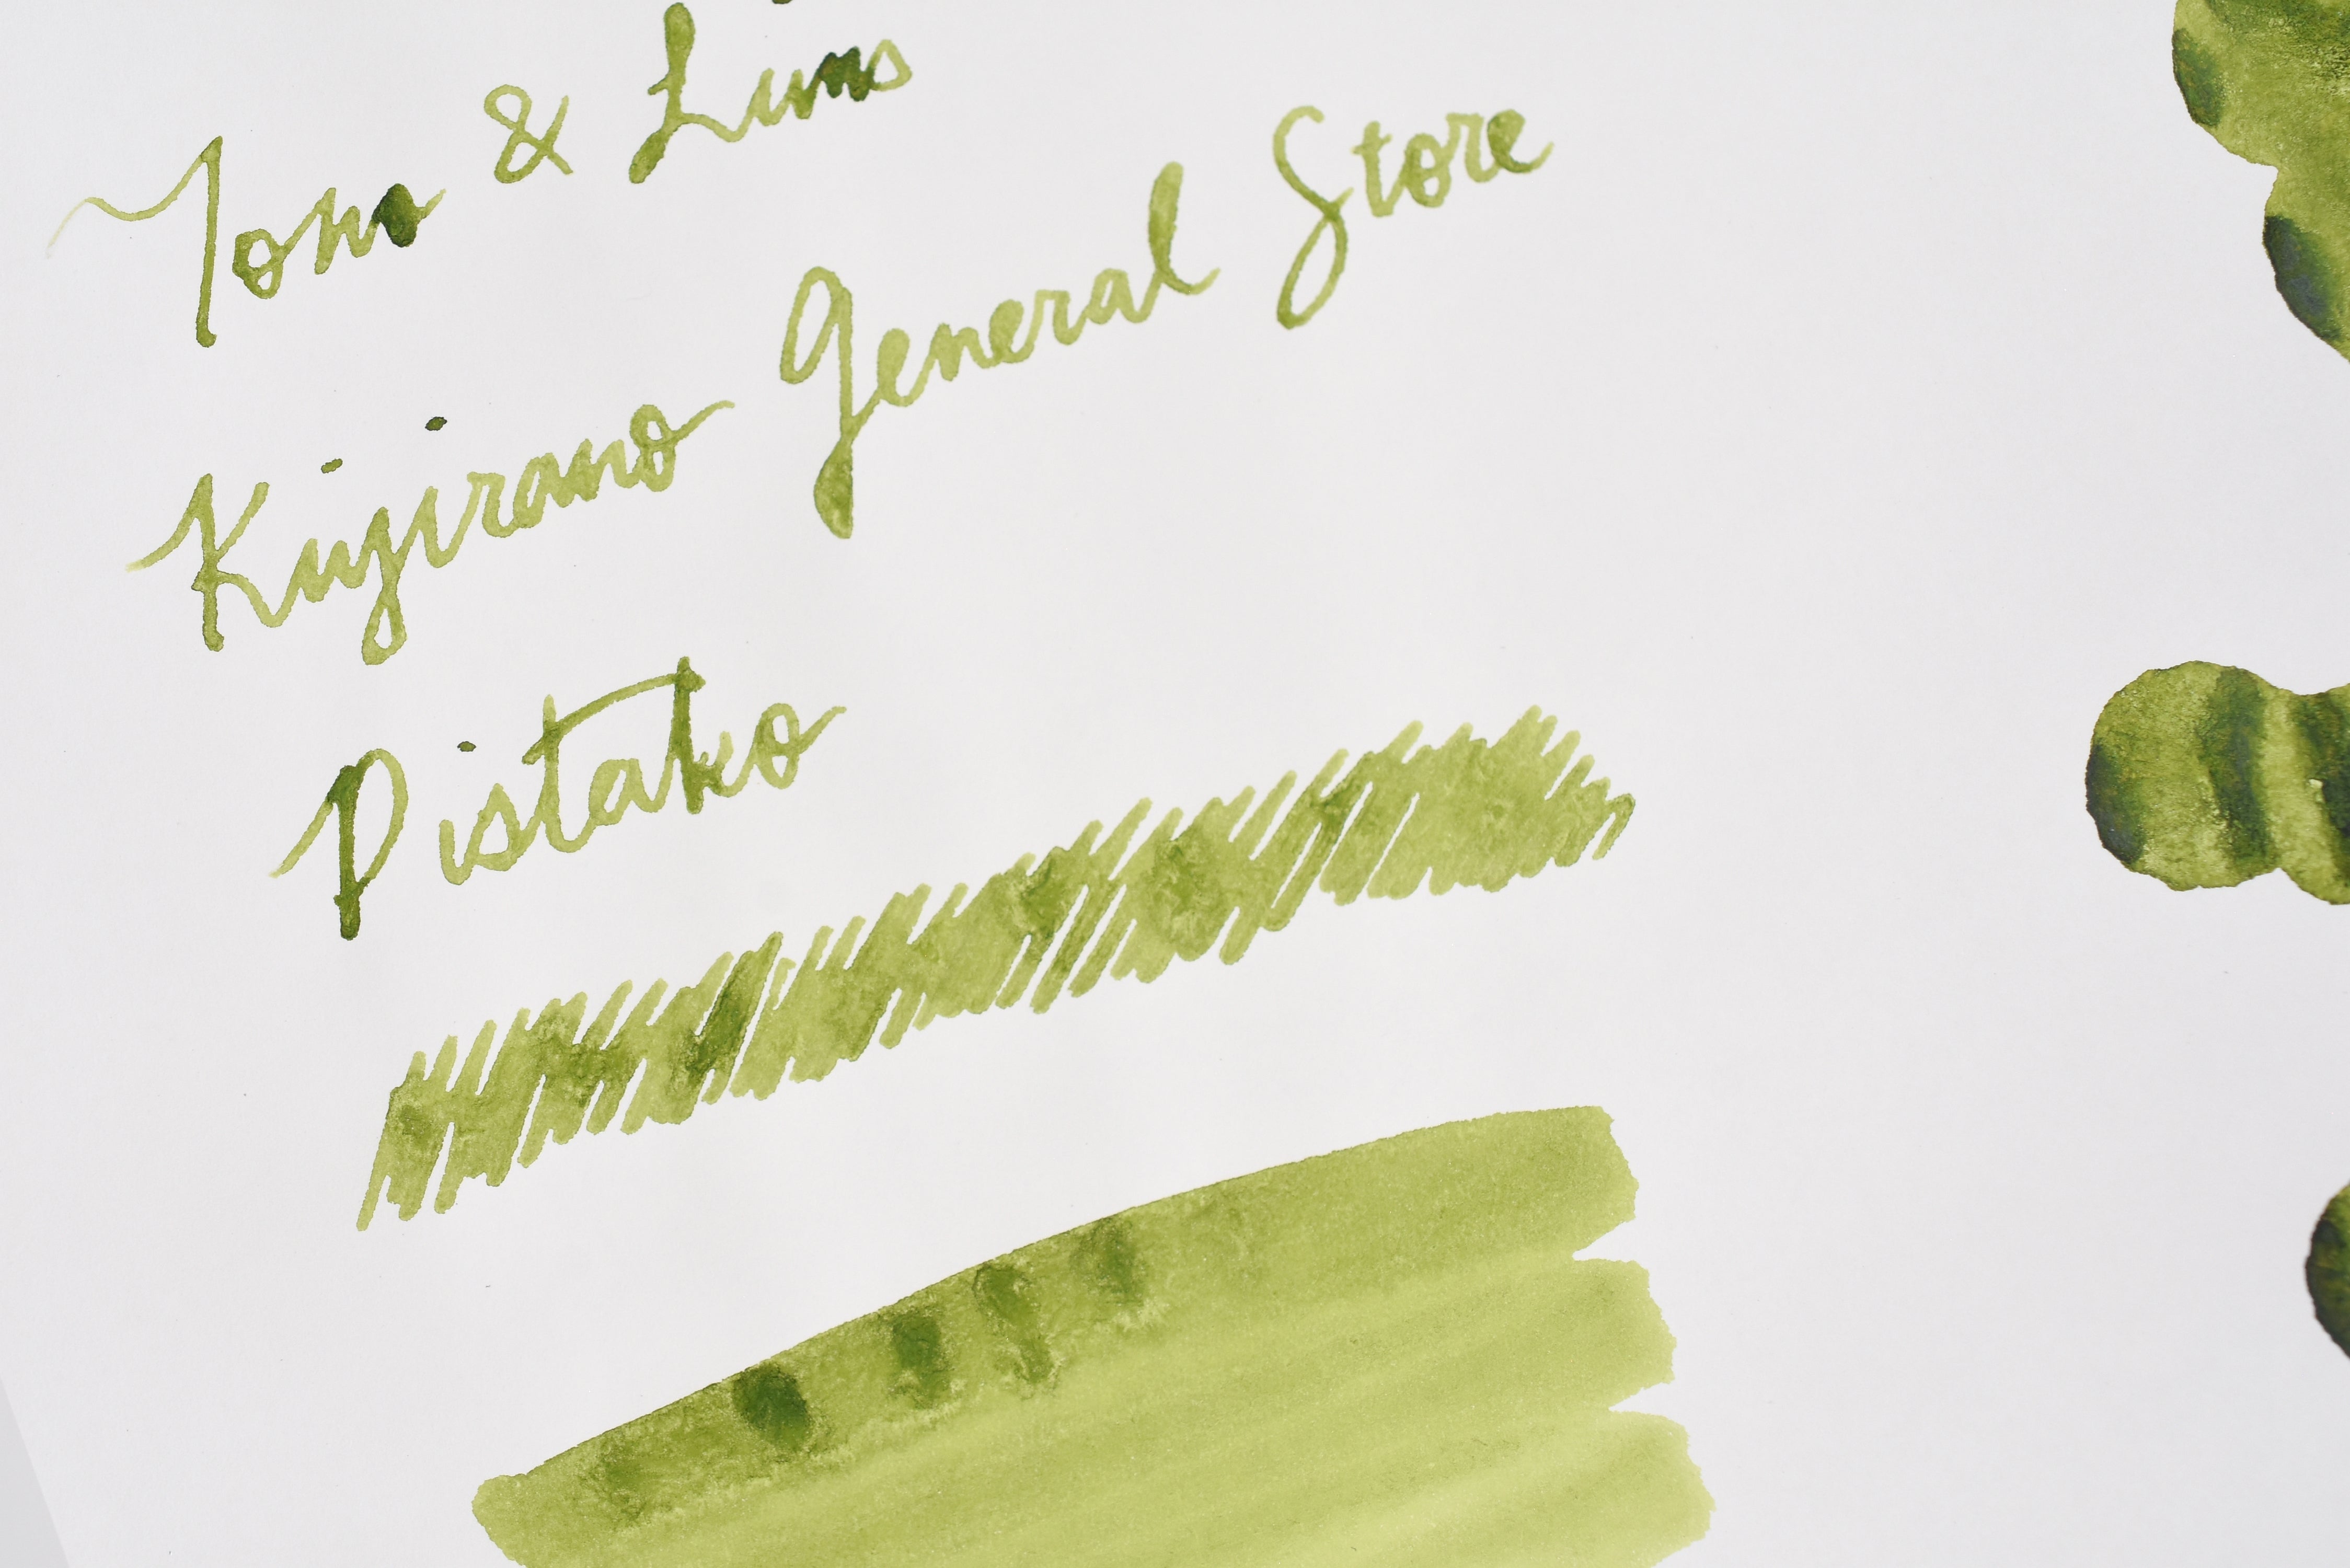 Tono & Lims
Kujirano General Store
Pistako